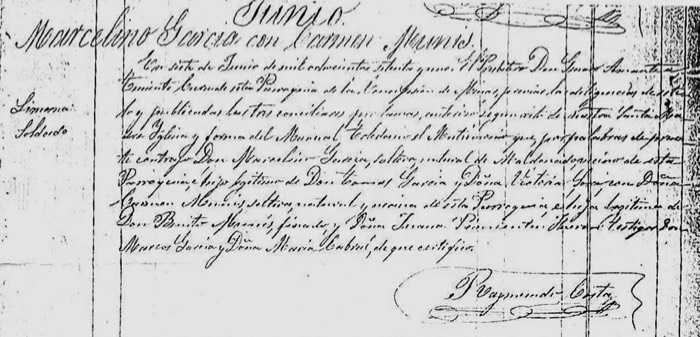 Junio.
Marcelino Garcia con Carmen Munis.
En siete de Junio de mil ochocientos setenta y uno. El Prebitro Don
Teniente Cura de esta Parroquia de la Concepcion de Minas, previas las diligencias de
lo y publicadas las tres conciliares proclamas, autorizo segun rito de nuestra Santa Ma
Limosna
dre Iglesia y forma del Manual Toledano el Matrimonio que, por palabras de presen
Soldado
te contrajo Don Marcelino Garcia, soltero, natural de Maldonado, vecino de esta
Parroquia e hijo legitimo de Don Tomas Garcia y Doña Victoria con Doña
Carmen Munis, soltera, natural y vecina de esta Parroquia, e hija legitima de
Don Benito Munis, finado, y Doña Juana Pimienta. Fueron testigos Don
Marcos Garcia y Doña Maria Cabral, de que certifico.
Raymundo Costa